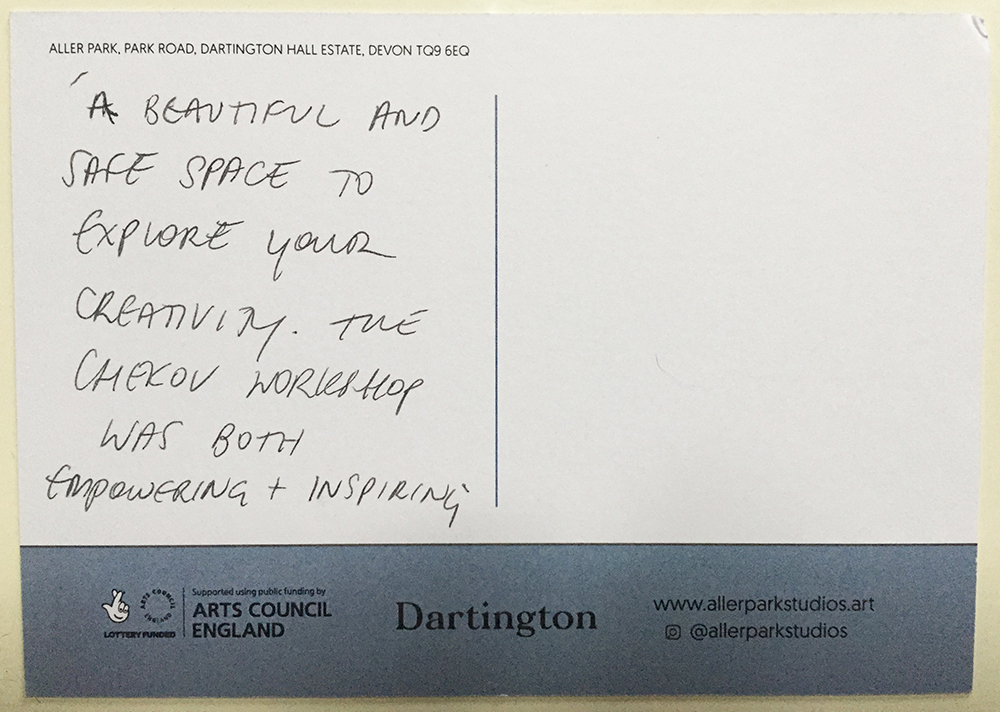 ALLER PARK, PARK ROAD, DARTINGTON HALL ESTATE, DEVON TQ9 6EQ
'A BEAUTIFUL AND
SAFE SPACE TO
EXPLORE YOUR
CREATIVITY. THE
CHEKOV WORKSHOP
WAS BOTH
EMPOWERING + INSPIRING'
LOTTERY FUNDED
ARTS COUNCIL ENGLAND
Supported using public funding by
ARTS COUNCIL
ENGLAND
Dartington
www.allerparkstudios.art
@allerparkstudios